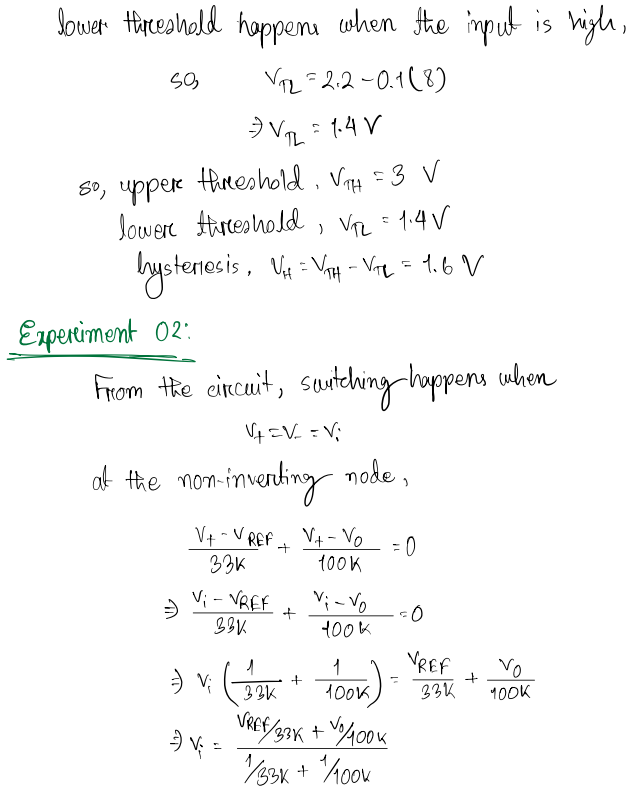 lower threshold happens when the input is high,
so, V_TL = 2.2 - 0.1(8)
⇒ V_TL = 1.4 V
so, upper threshold, V_TH = 3 V
lower threshold, V_TL = 1.4 V
hysteresis, V_H = V_TH - V_TL = 1.6 V
Experiment 02:
From the circuit, switching happens when
V+ = V- = Vi
at the non-inverting node,
(V+ - V_REF)/33K + (V+ - V_O)/100K = 0
⇒ (Vi - V_REF)/33K + (Vi - V_O)/100K = 0
⇒ Vi (1/33K + 1/100K) = V_REF/33K + V_O/100K
⇒ Vi = (V_REF/33K + V_O/100K)/(1/33K + 1/100K)